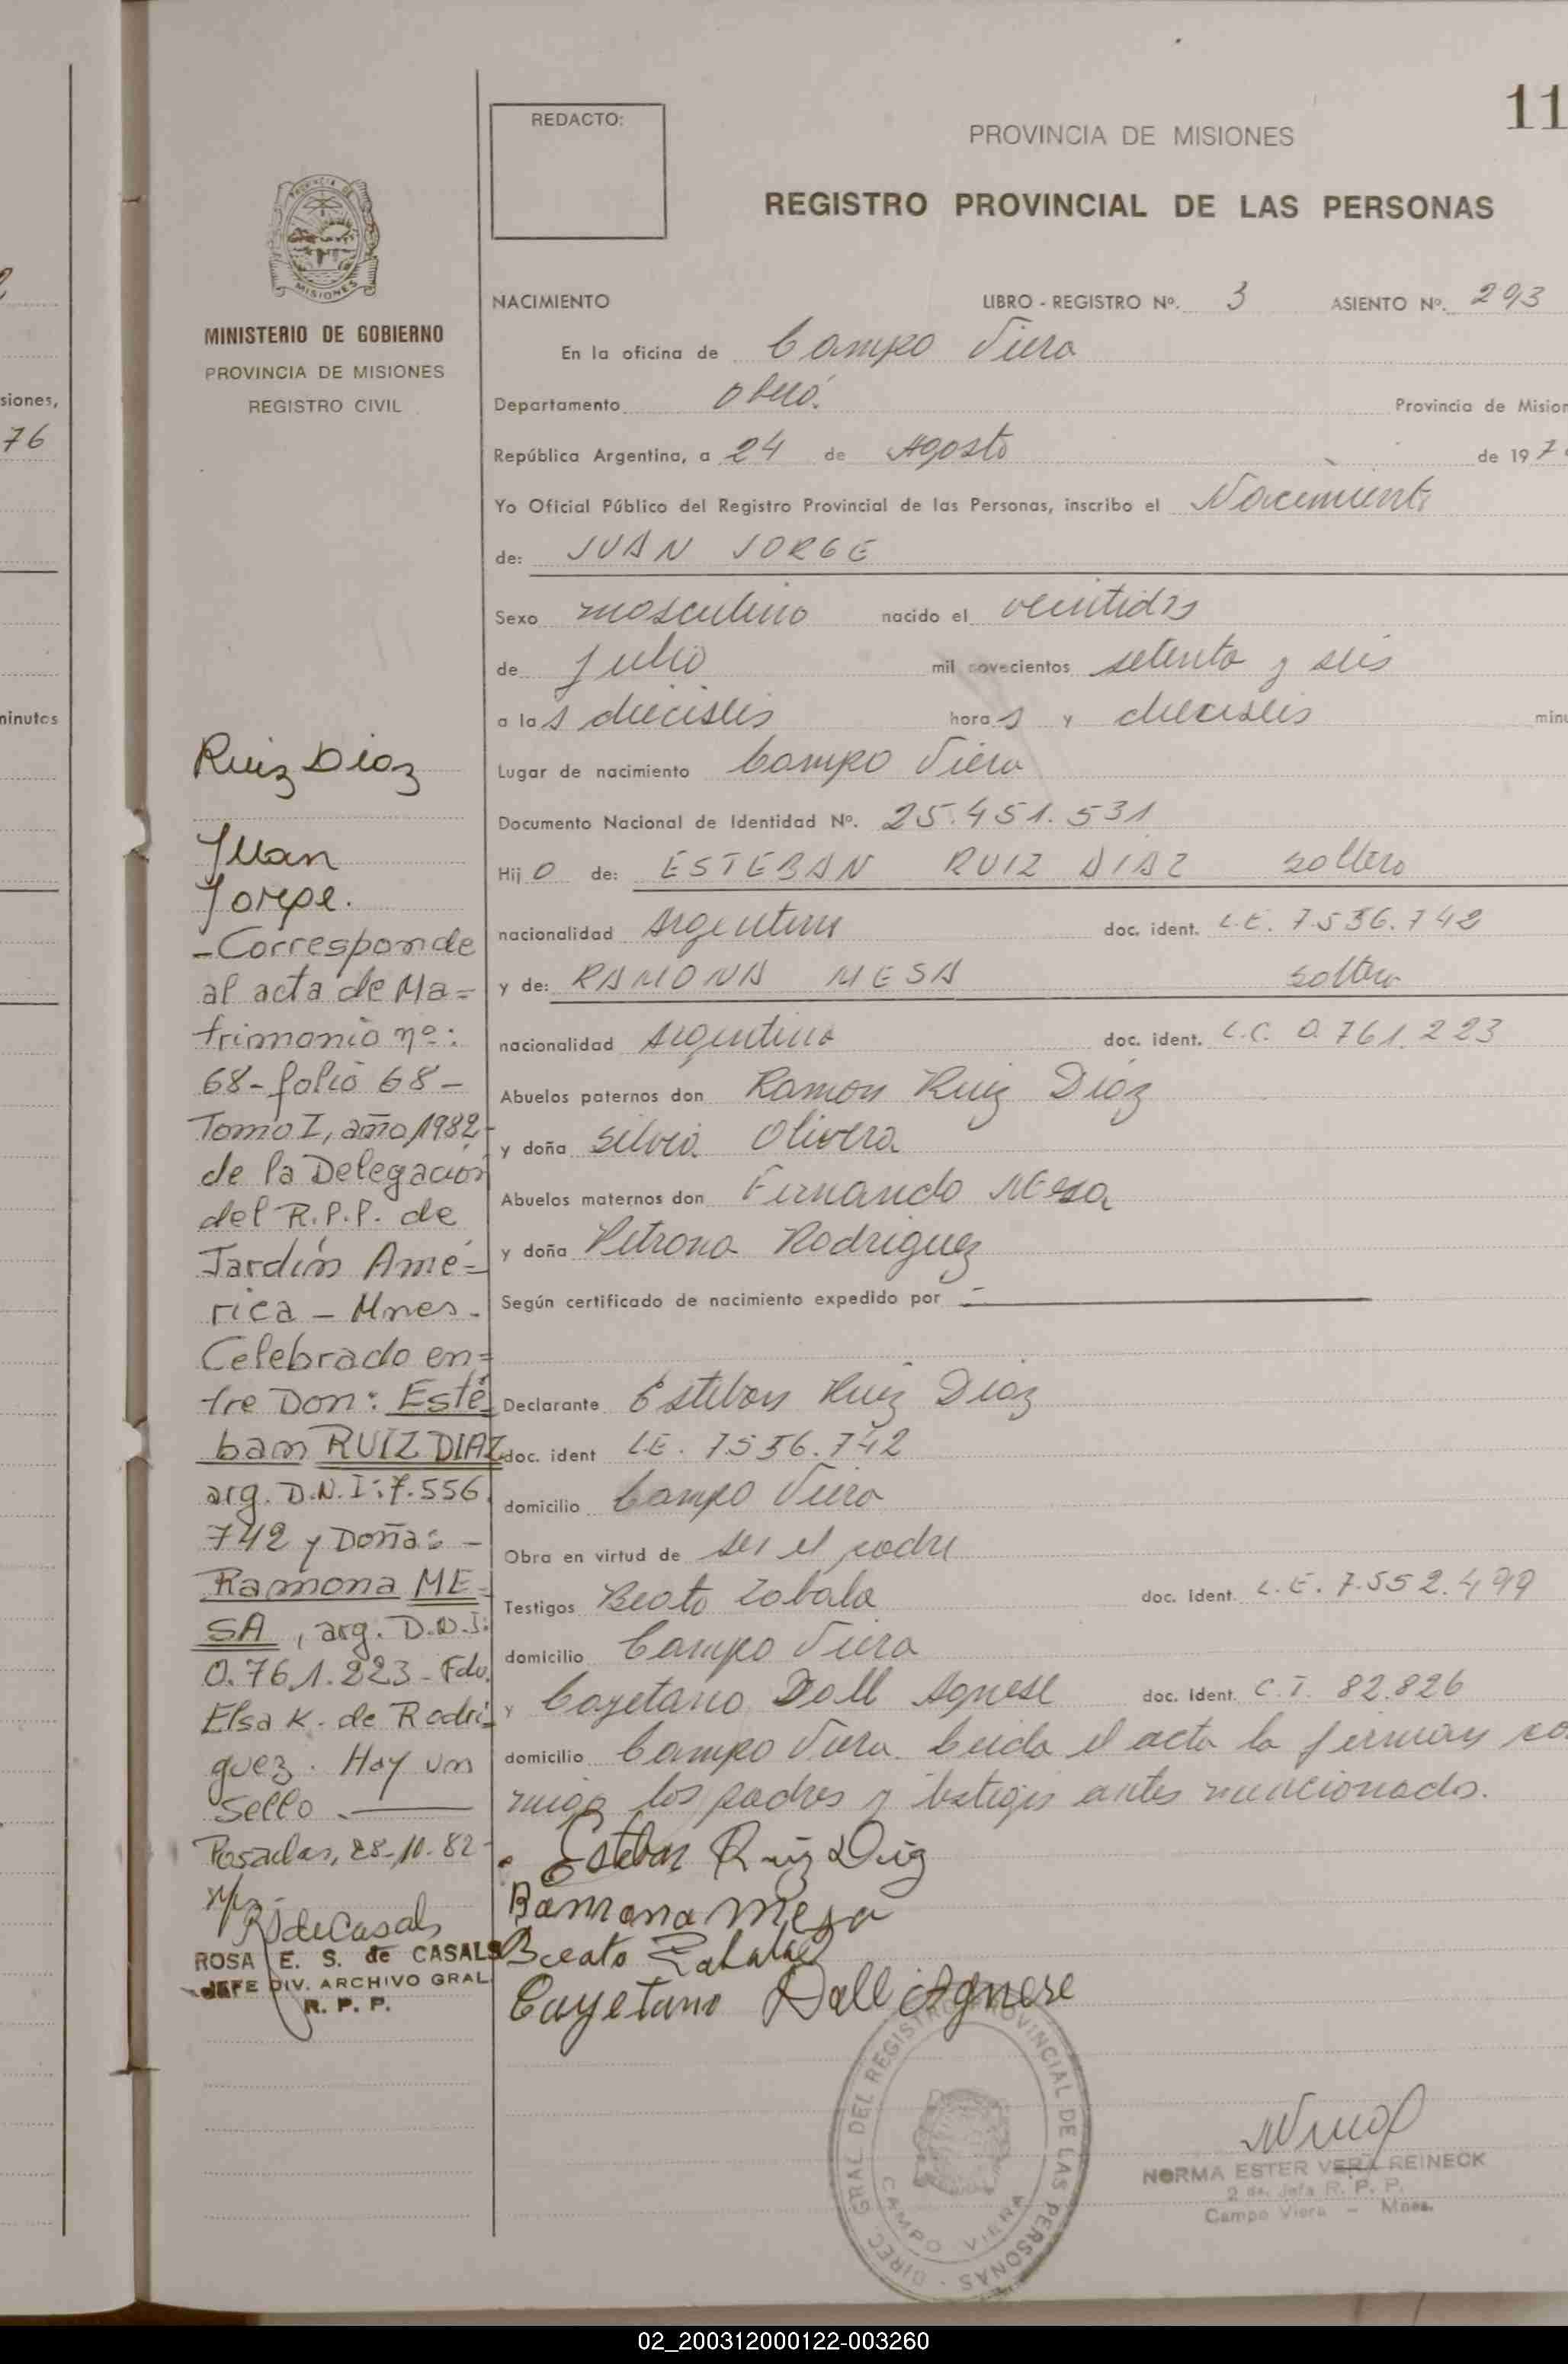 siones,
76
minutos
11
REDACTO:
PROVINCIA DE MISIONES
REGISTRO PROVINCIAL DE LAS PERSONAS
PROVINCIA DE
MISIONES
MINISTERIO DE GOBIERNO
PROVINCIA DE MISIONES
REGISTRO CIVIL
NACIMIENTO LIBRO - REGISTRO Nº. 3 ASIENTO Nº. 293
En la oficina de Campo Viera
Departamento Oberá. Provincia de Mision
República Argentina, a 24 de Agosto de 197
Yo Oficial Público del Registro Provincial de las Personas, inscribo el Nacimiento
de: JUAN JORGE
Sexo masculino nacido el veintidós
de Julio mil novecientos setenta y seis
a las dieciséis horas y dieciseis minu
Lugar de nacimiento Campo Viera
Documento Nacional de Identidad Nº. 25.451.531
Hijo de: ESTEBAN RUIZ DIAZ soltero
nacionalidad Argentina doc. ident. L.E. 7.556.742
y de: RAMONA MESA soltera
nacionalidad Argentina doc. ident. L.C. 0.761.223
Abuelos paternos don Ramon Ruiz Diaz
y doña Silvia Olivera
Abuelos maternos don Fernando Mesa
y doña Petrona Rodriguez
Según certificado de nacimiento expedido por —
Declarante Esteban Ruiz Diaz
doc. ident LE. 7556.742
domicilio Campo Viera
Obra en virtud de ser el padre
Testigos Beato Zabala doc. Ident. L.E. 7.552.499
domicilio Campo Viera
y Cayetano Dall Agnese doc. Ident. C.I. 82.826
domicilio Campo Viera. Leida el acta la firman co
migo los padres y testigos antes mencionados.
Esteban Ruiz Diaz
Ramona Mesa
Beato Zabala
Cayetano Dall Agnese
Ruiz Diaz
Juan
Jorge.
-Corresponde
al acta de Ma=
trimonio nº:
68-folio 68-
Tomo I, año 1982-
de la Delegación
del R.P.P. de
Jardín Amé=
rica - Mnes.
Celebrado en=
tre Don: Esté=
ban RUIZ DIAZ
arg. D.N.I: 7.556.
742 y Doña: -
Ramona ME=
SA, arg. D.N.I:
0.761.223- Fdo.
Elsa K. de Rodri=
guez. Hay un
Sello.
Posadas, 28-10-82-
RSdeCasals
ROSA E. S. de CASALS
JEFE DIV. ARCHIVO GRAL
R. P. P.
DIREC. GRAL DEL REGISTRO PROVINCIAL DE LAS PERSONAS
CAMPO VIERA
NORMA ESTER VERA REINECK
2 da. Jefa R. P. P.
Campo Viera - Mnes.
02_200312000122-003260